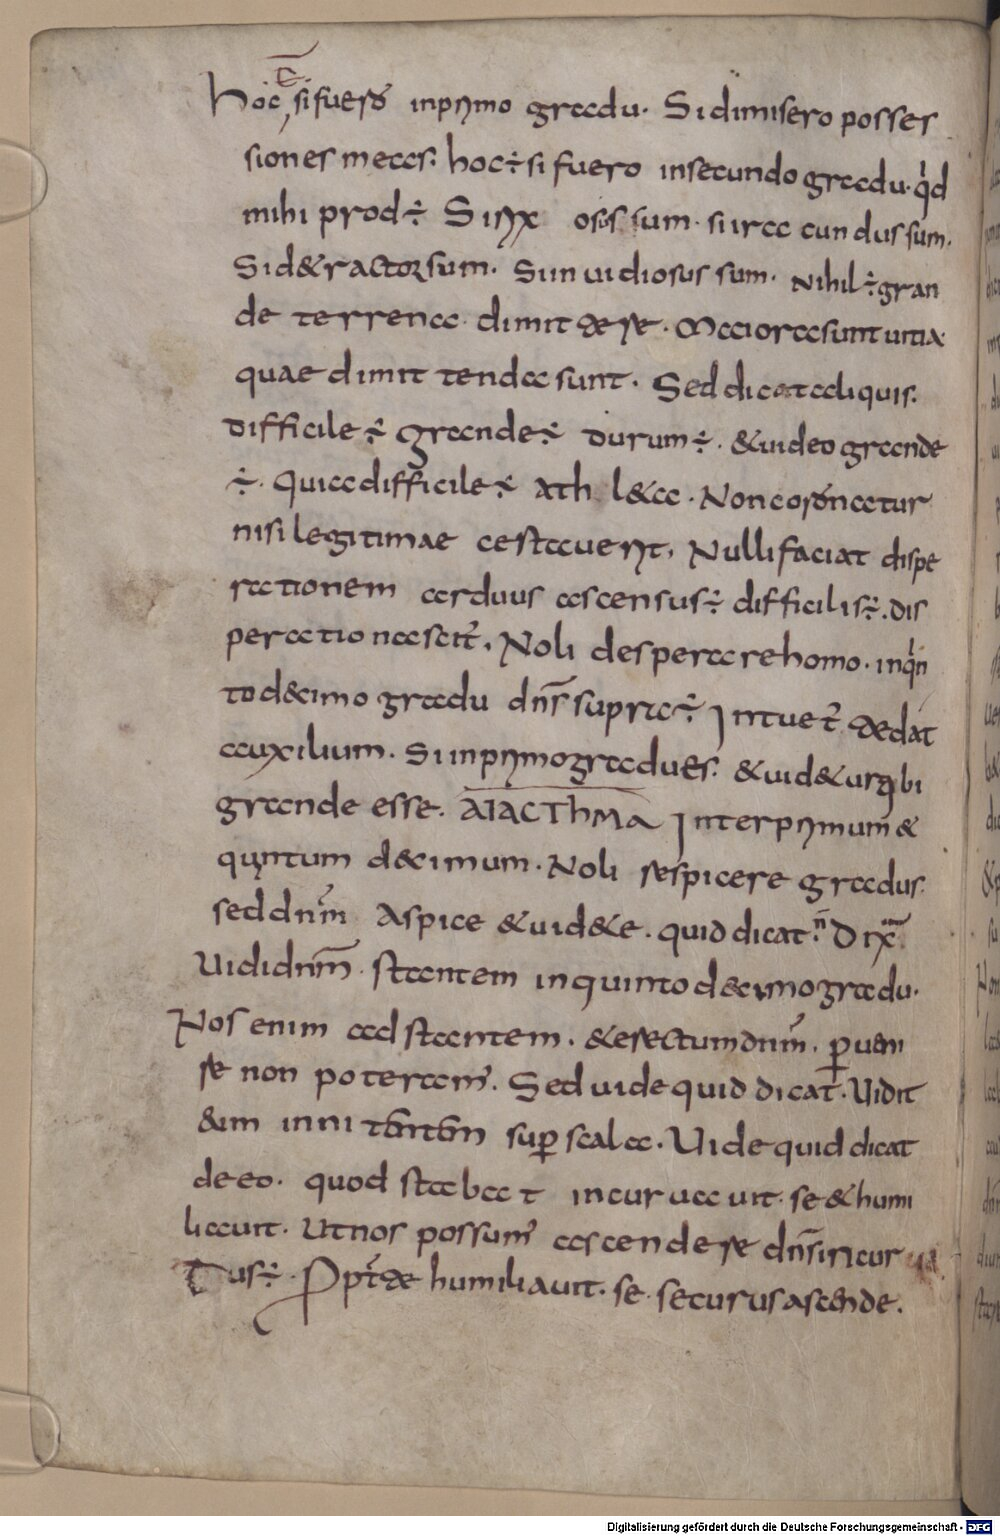 Hoc ÷ si fuero in primo gradu. Si dimisero posses
siones meas. hoc ÷ si fuero in secundo gradu. qd
mihi prod ÷ Si rixosus sum. si iracundus sum.
Si d&ractor sum. Si inuidiosus sum. Nihil ÷ gran
de terrena dimittere. Maiora sunt uitia
quae dimittenda sunt. Sed dicat aliquis.
difficile ÷ grande ÷ durum ÷. & uideo grande
÷. Quia difficile ÷ athl&a. Non coronatur
nisi legitimae certauerit. Nulli faciat dispe
rationem arduus ascensus ÷ difficilis ÷. dis
peratio nascit̄. Noli desperare homo. in qn
to decimo gradu dn̄s supra ÷ Intuet̄ te & dat
auxilium. Si in primo gradu es. & uid& ur tibi
grande esse. ΔΙΑCΤhΜΑ Inter primum &
quintum decimum. Noli respicere gradus
sed dn̄m Aspice & uid&e. quid dicat. n̄ dix̄
Uidi dn̄m stantem in quinto decimo gradu.
Nos enim ad stantem. & erectum dn̄m. p̱ueni
re non poteram̄. Sed uide quid dicat. Uidit
eum innitentem sup̱ scala. Uide quid dicat
de eo. quod stabat incuruauit se & humi
liauit. Ut nos possum̄ ascendere dn̄s incurua
tus ÷. Propt̄ te humiliauit. se. securus ascende.
Digitalisierung gefördert durch die Deutsche Forschungsgemeinschaft - DFG